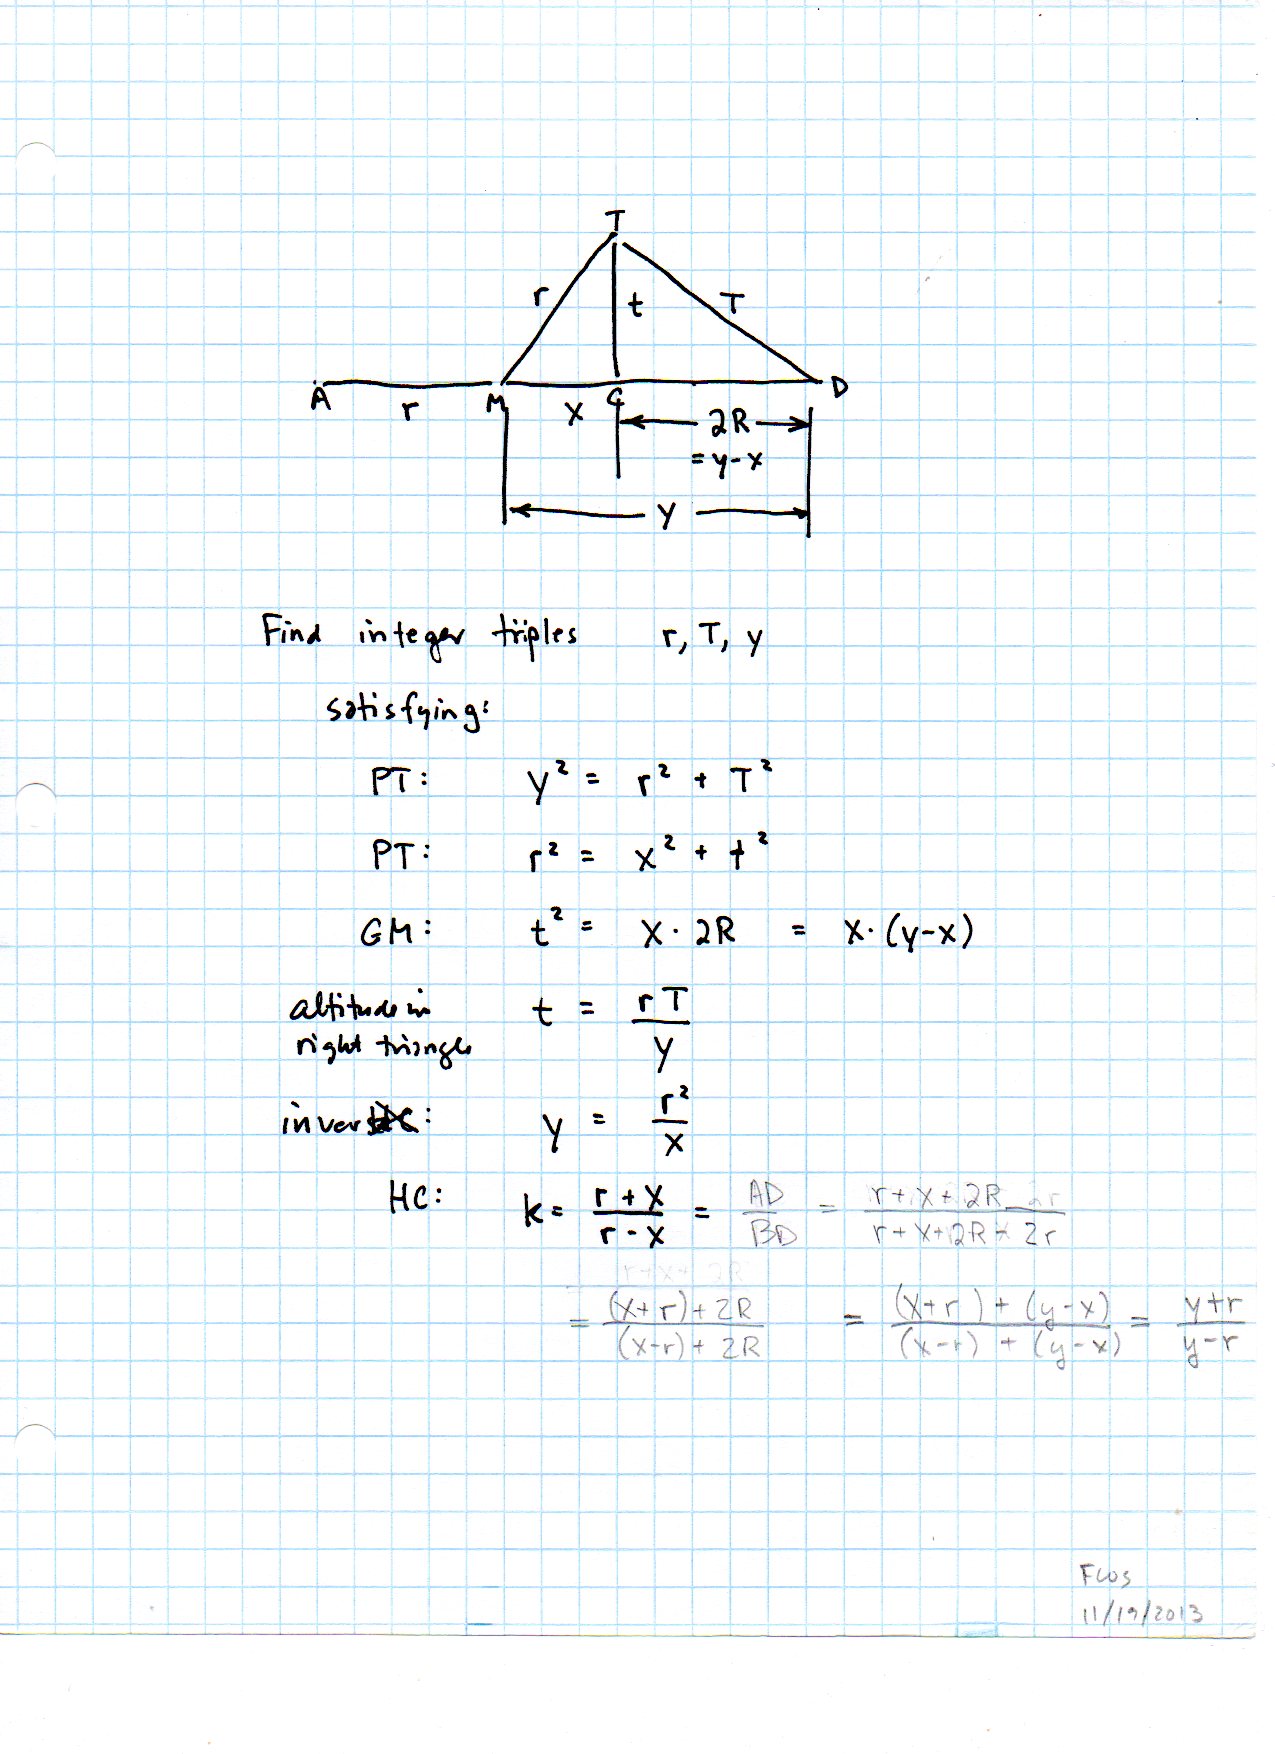 T
r t T
A r M x C D
2R
= y-x
y
Find integer triples r, T, y
satisfying:
PT: y² = r² + T²
PT: r² = x² + t²
GM: t² = x · 2R = x · (y-x)
altitude in
right triangle t = rT/y
inver : y = r²/x
HC: k = (r+x)/(r-x) = AD/BD = (r+x+2R)/(r+x+2R-2r)
= ((x+r)+2R)/((x-r)+2R) = ((x+r)+(y-x))/((x-r)+(y-x)) = (y+r)/(y-r)
11/19/2013